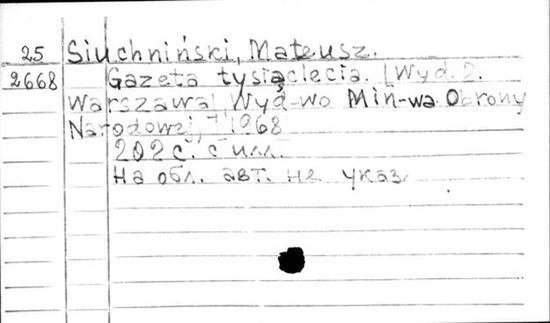 25 Siuchniński, Mateusz.
2668 Gazeta tysiąclecia. [Wyd. 2.
Warszawa] Wyd-wo Min-wa Obrony
Narodowej, 1968
202 с. с илл.
На обл. авт. не указ.